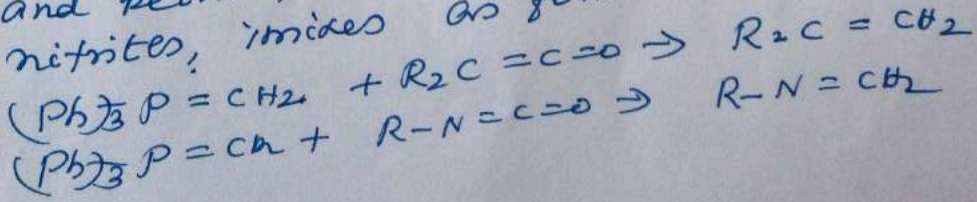 and
nitrites, imides as
(Ph)3 P = CH2 + R2C = C = O → R2C = CH2
(Ph)3 P = CH2 + R-N = C = O → R-N = CH2